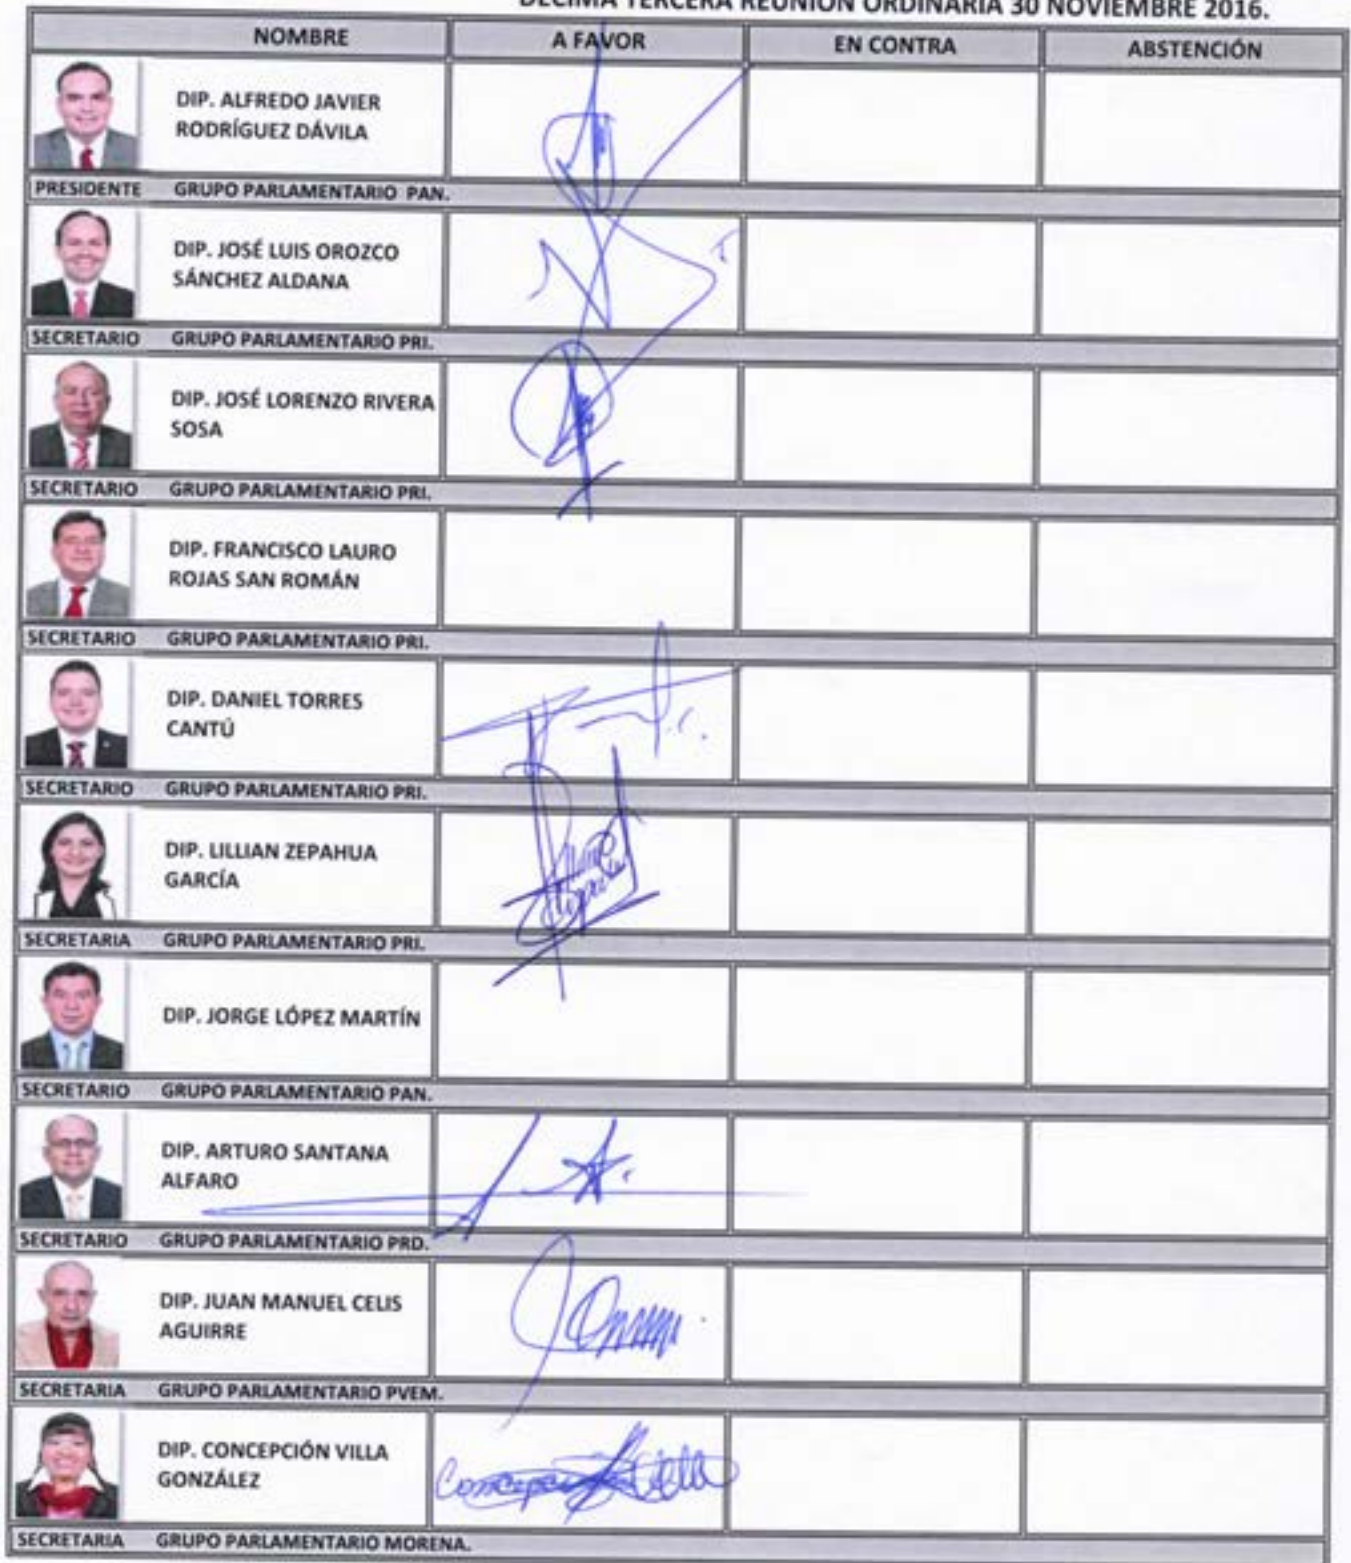 DÉCIMA TERCERA REUNIÓN ORDINARIA 30 NOVIEMBRE 2016.
NOMBRE A FAVOR EN CONTRA ABSTENCIÓN
DIP. ALFREDO JAVIER
RODRÍGUEZ DÁVILA
PRESIDENTE GRUPO PARLAMENTARIO PAN.
DIP. JOSÉ LUIS OROZCO
SÁNCHEZ ALDANA
SECRETARIO GRUPO PARLAMENTARIO PRI.
DIP. JOSÉ LORENZO RIVERA
SOSA
SECRETARIO GRUPO PARLAMENTARIO PRI.
DIP. FRANCISCO LAURO
ROJAS SAN ROMÁN
SECRETARIO GRUPO PARLAMENTARIO PRI.
DIP. DANIEL TORRES
CANTÚ
SECRETARIO GRUPO PARLAMENTARIO PRI.
DIP. LILLIAN ZEPAHUA
GARCÍA
SECRETARIA GRUPO PARLAMENTARIO PRI.
DIP. JORGE LÓPEZ MARTÍN
SECRETARIO GRUPO PARLAMENTARIO PAN.
DIP. ARTURO SANTANA
ALFARO
SECRETARIO GRUPO PARLAMENTARIO PRD.
DIP. JUAN MANUEL CELIS
AGUIRRE
SECRETARIA GRUPO PARLAMENTARIO PVEM.
DIP. CONCEPCIÓN VILLA
GONZÁLEZ
Concepción Villa
SECRETARIA GRUPO PARLAMENTARIO MORENA.